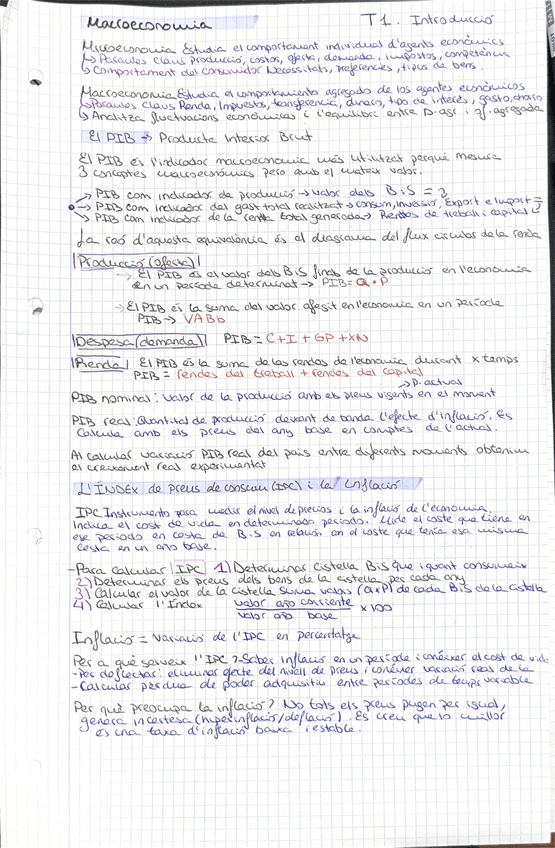 Macroeconomia T1. Introducció
Microeconomia Estudia el comportament individual d'agents econòmics
↳ Paraules claus producció, costos, oferta, demanda, impostos, competència
↳ Comportament del consumidor Necessitats, preferències, tipus de bens.
Macroeconomia Estudia el comportamiento agregado de los agentes económicos
↳ Paraules claus Renda, Impuestos, transferencia, dinero, tipo de interés, gasto, ahorro
↳ Analitza fluctuacions econòmiques i l'equilibri entre D.agr i of.agregada
El PIB → Producte Interior Brut
El PIB és l'indicador macroeconomic més utilitzat perquè mesura
3 conceptes macroeconòmics pero amb el mateix valor.
→ PIB com indicador de producció → valor dels BiS =
→ PIB com indicador del gast total realitzat → consum, inversió, Export e Import =
→ PIB com indicador de la renta total generada → Rentes de treball i capital
La raó d'aquesta equivalència és el diagrama del flux circular de la renda
Producció (oferta)
→ El PIB és el valor dels BiS finals de la producció en l'economia
en un període determinat → PIB = Q • P
→ El PIB és la suma del valor afegit en l'economia en un període
PIB → VABb
Despesa (demanda) PIB = C + I + GP + XN
Renda El PIB és la suma de las rendes de l'economia durant x temps
PIB = rendes del treball + rendes del capital
→ P. actual
PIB nominal: Valor de la producció amb els preus vigents en el moment
PIB real: Quantitat de producció deixant de banda l'efecte d'inflació. Es
Calcula amb els preus del any base en comptes de l'actual.
Al calcular variació PIB real del pais entre diferents moments obtenim
el creixement real experimentat
L'ÍNDEX de preus de consum (IPC) i la Inflació
IPC Instrumento para medir el nivel de precios i la inflació de l'economia.
Indica el cost de vida en determinado periodo. Mide el coste que tiene en
ese periodo en cesta de BiS en relación con el coste que tenía esa misma
cesta en un año base.
- Para calcular IPC 1) Determinar cistella BiS que i quant consumeix
2) Determinar els preus dels bens de la cistella per cada any
3) Calcular el valor de la cistella suma valors (QxP) de cada BiS de la cistella
4) Calcular l'Índex valor año corriente / valor año base x 100
Inflació = Variació de l'IPC en percentatge
Per a què serveix l'IPC? - Saber inflació en un període i conèixer el cost de vida
- Per deflectar: eliminar efecte del nivell de preus i conèixer variació real de la
- Calcular pèrdua de poder adquisitiu entre períodes de temps variable
Per què preocupa la inflació? No tots els preus pugen per igual,
genera incertesa (hiperinflació/deflació). Es creu que lo millor
és una taxa d'inflació baixa i estable.